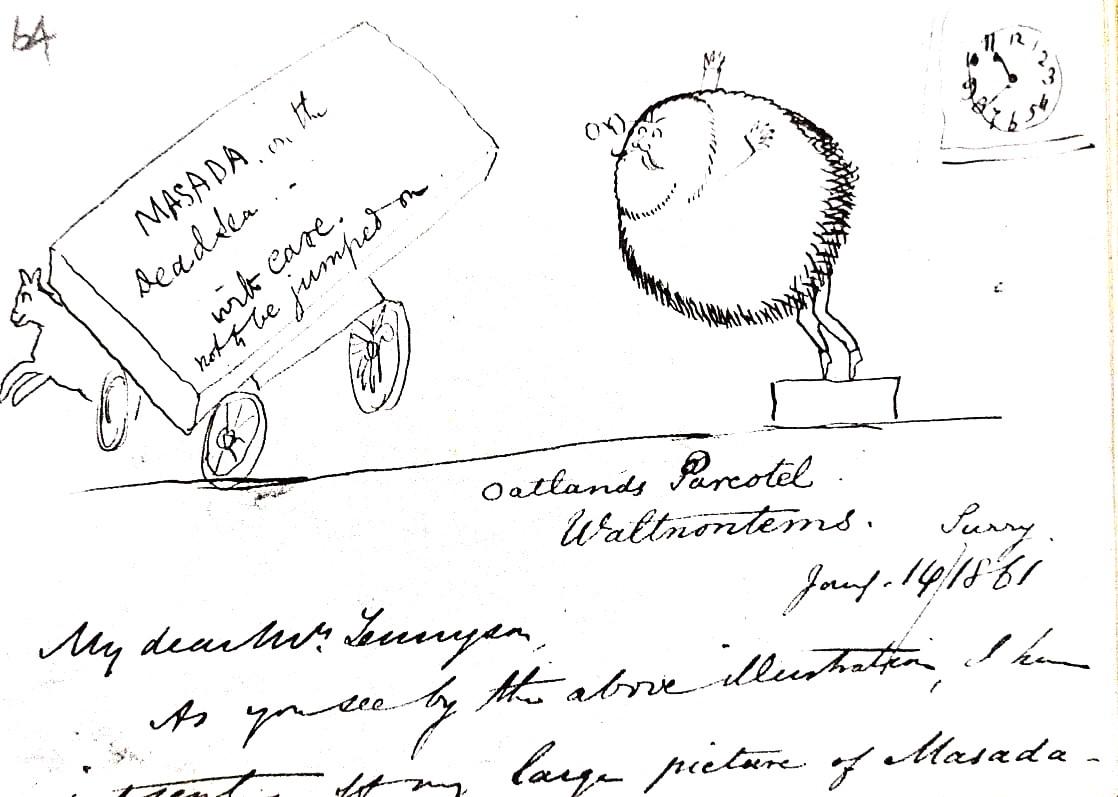 64
MASADA. on the
Dead Sea.
with care.
not to be jumped on
11 12 1
10 2
9 3
8 4
7 6 5
Oatlands Parcotel.
Waltnontems. Surry.
Jany. 14/1861
My dear Mrs. Tennyson,
As you see by the above illustration, I have
just sent off my large picture of Masada -